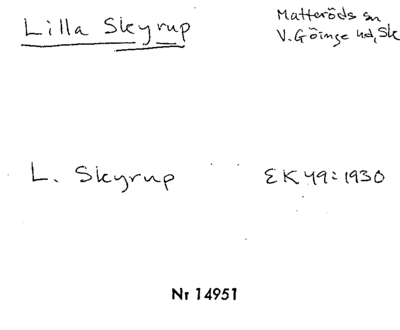 Lilla Skyrup
Matteröds sn
V. Göinge hd, Sk
L. Skyrup
EK 49:1930
Nr 14951